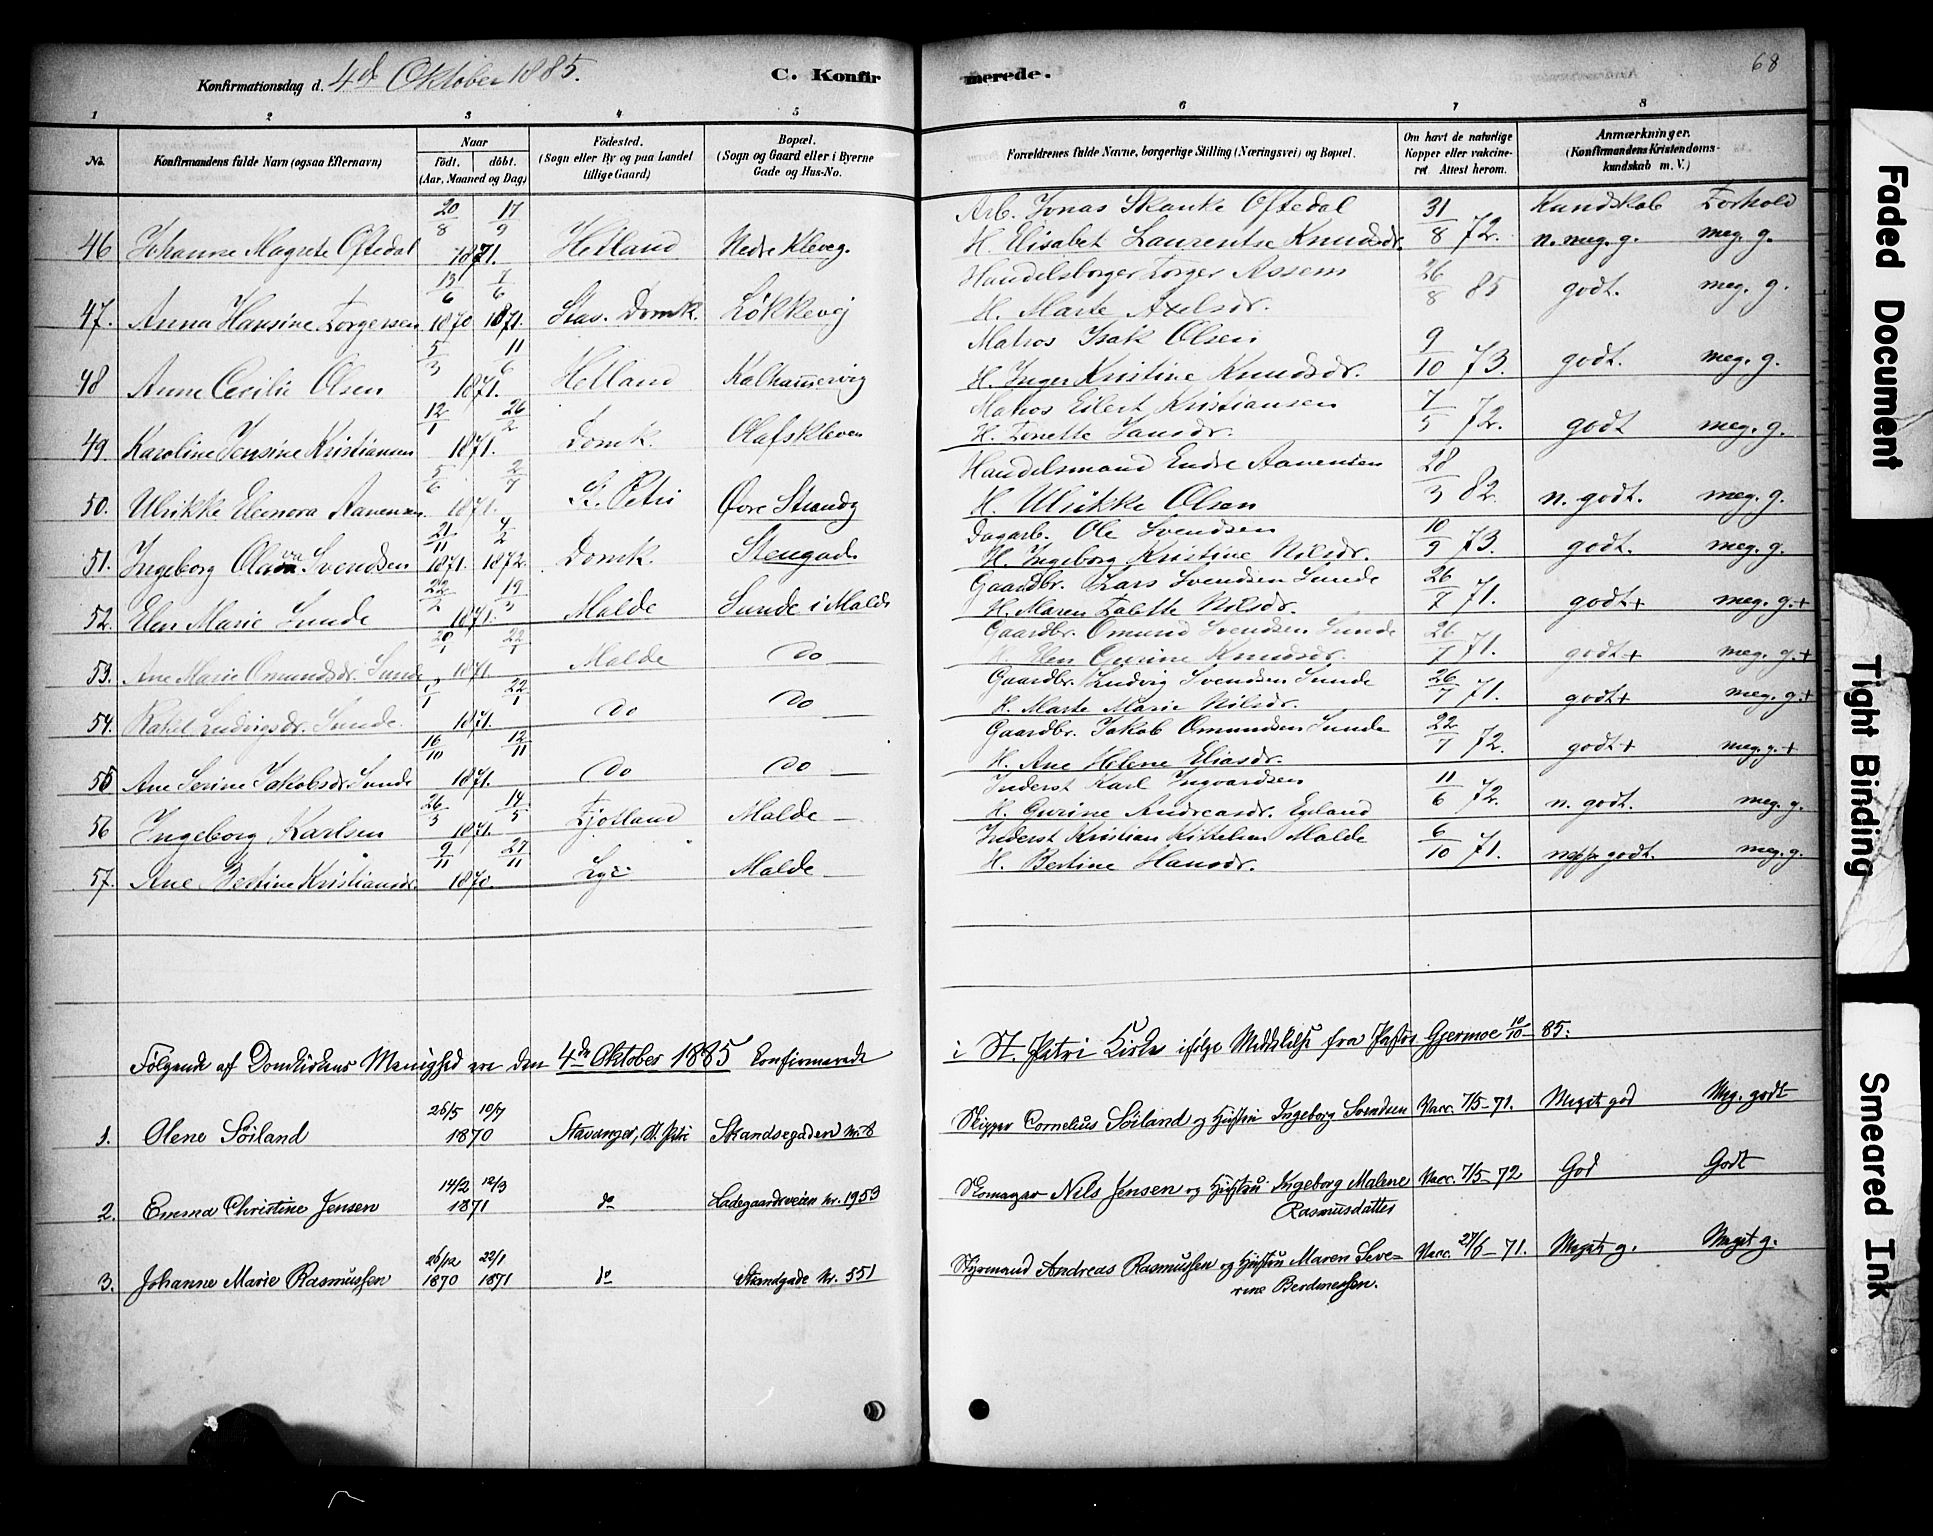 68
Konfirmationsdag d. 4de Oktober 1885.
C. Konfirmerede.
1 2 3 4 5 6 7 8
No.
Konfirmandens fulde Navn (ogsaa Efternavn)
Naar
født. døbt.
(Aar, Maaned og Dag)
Fødested.
(Sogn eller By og paa Landet
tillige Gaard)
Bopæl.
(Sogn og Gaard eller i Byerne
Gade og Hus-No.
Forældrenes fulde Navne, borgerlige Stilling (Næringsvei) og Bopæl.
Om havt de naturlige
Kopper eller vakcine-
ret. Attest herom.
Anmærkninger.
(Konfirmandens Kristendoms-
kundskab m. V.)
Kundskab Forhold
20/8 17/9 Arb. Jonas Skanke Oftedal 31
46 Johanne Magrete Oftedal 1871. Hetland Nedre Kleveg. H. Elisabet Laurentse Knudsdr. 8 72. n. meg. g. meg. g.
13/6 7/6 Handelsborger Torger Assem 26
47. Anna Hansine Torgersen 1870 1871. Stav. Domk. Løkkevej H. Marte Axelsdr. 8 85 godt. meg. g.
5/3 11/6 Matros Isak Olsen 9
48 Anne Cecilie Olsen 1871. Hetland Kalhammervig H. Inger Kristine Knudsdr. 10 73. godt. meg. g.
12/1 26/2 Matros Eilert Kristiansen 7
49 Karoline Jensine Kristiansen 1871. Domk. Olafskleven H. Tonette Jansdr. 5 72. godt meg. g.
5/6 2/7 Handelsmand Endre Aanensen 28
50. Ulrikke Eleonora Aanensen. 1871. St. Petri Øvre Strandg H. Ulrikke Olsen 3 82. n. godt. meg. g.
21/11 4/2 Dagarb. Ole Svendsen 10
51. Ingeborg Olava Svendsen 1871. 1872. Domk. Stengad. H. Ingeborg Kristine Nilsdr. 9 73. godt. meg. g.
22/2 19/3 Gaardbr. Lars Svendsen Sunde 26
52. Elen Marie Sunde 1871. Malde Sunde i Malde H. Maren Talette Nilsdr. 7 71. godt+ meg. g.+
20/1 22/1 Gaardbr. Omund Svendsen Sunde 26
53. Ane Marie Omundsdr. Sunde 1871. Malde Do H. Elen Gurine Knudsdr. 7 71. godt+ meg. g.+
1/1 22/1 Gaardbr. Ludvig Svendsen Sunde 26
54. Rakel Ludvigsdr. Sunde. 1871. Do Do H. Marte Marie Nilsdr. 7 71. godt+ meg. g.+
16/10 12/11 Gaardbr. Jakob Omundsen Sunde 22
55 Ane Serine Jakobsdr. Sunde 1871. Do Do H. Ane Helene Eliasdr. 7 72. godt+ meg. g.+
26/3 14/5 Inderst Karl Ingvardsen 11
56 Ingeborg Karlsen 1871. Fjotland Malde H. Gurine Andreasdr. Egeland 6 72. n. godt. meg. g.
9/11 27/11 Inderst Kristian Kittelsen Malde 6
57. Ane Bertine Kristiansdr. 1870. Lye Malde H. Bertine Hansdr. 10 71. godt. meg. g.
Følgende af Domkirkens Menighed ere den 4de Oktober 1885 Konfirmerede i St. Petri Kirke ifølge Meddelelse fra Pastor Gjermoe 10/10–85:
26/5 10/7
1. Olene Søiland 1870 Stavanger, St. Petri Skandsegaden Nr. 8 Skipper Cornelius Søiland og Hustru Ingeborg Svendsen Vacc. 7/5–71. Meget god Meg. godt
14/2 12/3
2. Emma Christine Jensen 1871 do Ladegaardsveien Nr. 1953 Skomager Nils Jensen og Hustru Ingeborg Malene Vacc. 7/5–72 God Godt
Rasmusdatter
26/12 22/1
3. Johanne Marie Rasmussen 1870 1871 do Strandgade Nr. 551 Styrmand Andreas Rasmussen og Hustru Maren Seve- Vacc. 27/5–71. Meget g. Meget g.
rine Berdinessen.
Faded Document
Tight Binding
Smeared Ink